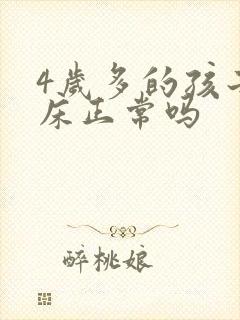 4岁多的孩子
床正常吗
醉桃娘